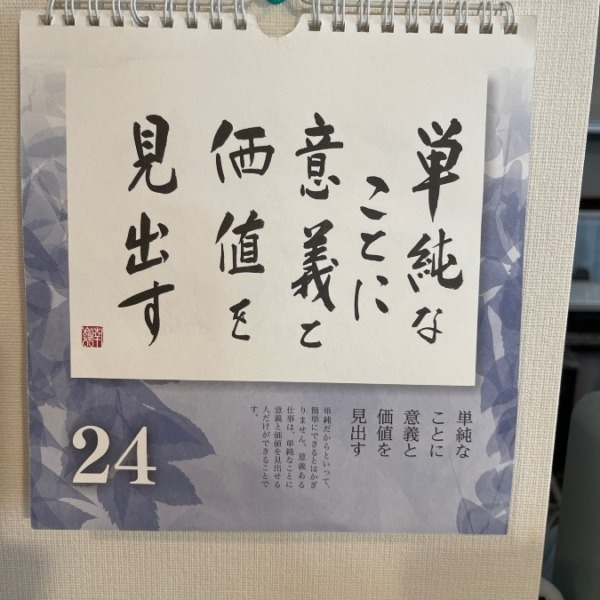 単純な
ことに
意義と
価値を
見出す
単純な
ことに
意義と
価値を
見出す
単純だからといって、
簡単にできるとはかぎ
りません。意義ある
仕事は、単純なことに
意義と価値を見出せる
人だけができることで
す。
24